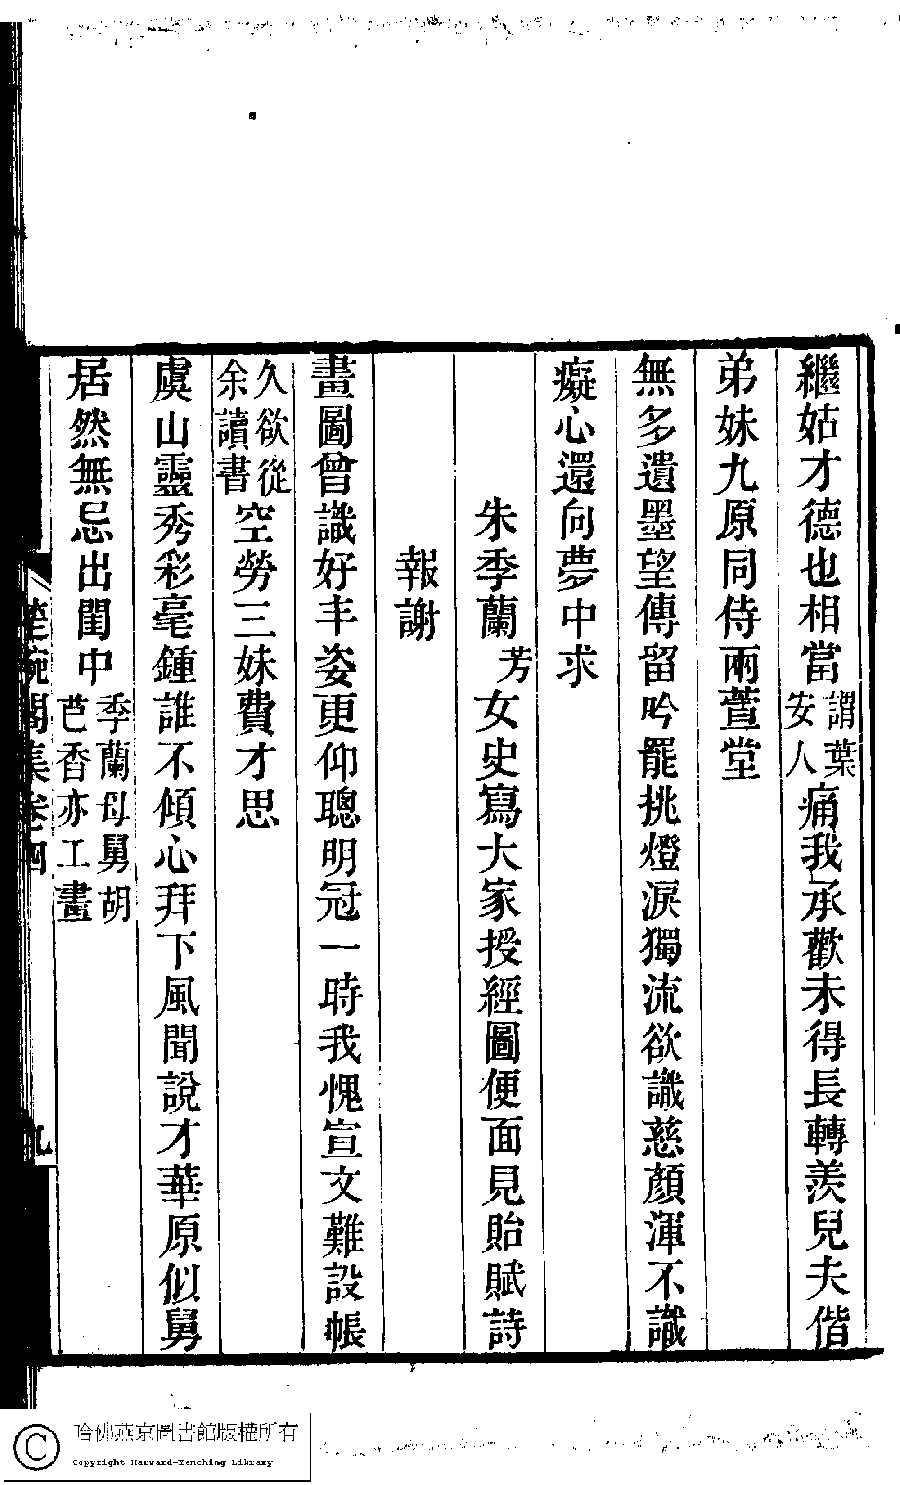 繼姑才德也相當謂葉安人痛我承歡未得長轉羨兒夫偕
弟妹九原同侍兩萱堂
無多遺墨望傳留吟罷挑燈淚獨流欲識慈顏渾不識
癡心還向夢中求
朱季蘭芳女史寫大家授經圖便面見貽賦詩
報謝
畫圖曾識好丰姿更仰聰明冠一時我愧宣文難設帳
久欲從余讀書空勞三妹費才思
虞山靈秀彩毫鍾誰不傾心拜下風聞說才華原似舅
居然無忌出閨中季蘭母舅胡芭香亦工畫
閣集卷四
九
哈佛燕京圖書館版權所有
Copyright Harvard-Yenching Library